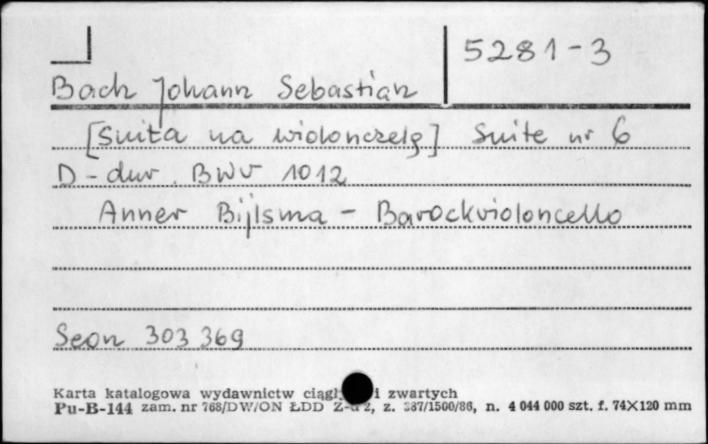 5281-3
Bach Johann Sebastian
[Suita na wiolonczelę] Suite nr 6
D-dur, BWV 1012
Anner Bijlsma - Barockvioloncello
Seon 303 369
Karta katalogowa wydawnictw i zwartych
Pu-B-144 zam. nr 768/DW/ON ŁDD z. 387/1500/86, n. 4 044 000 szt. f. 74X120 mm